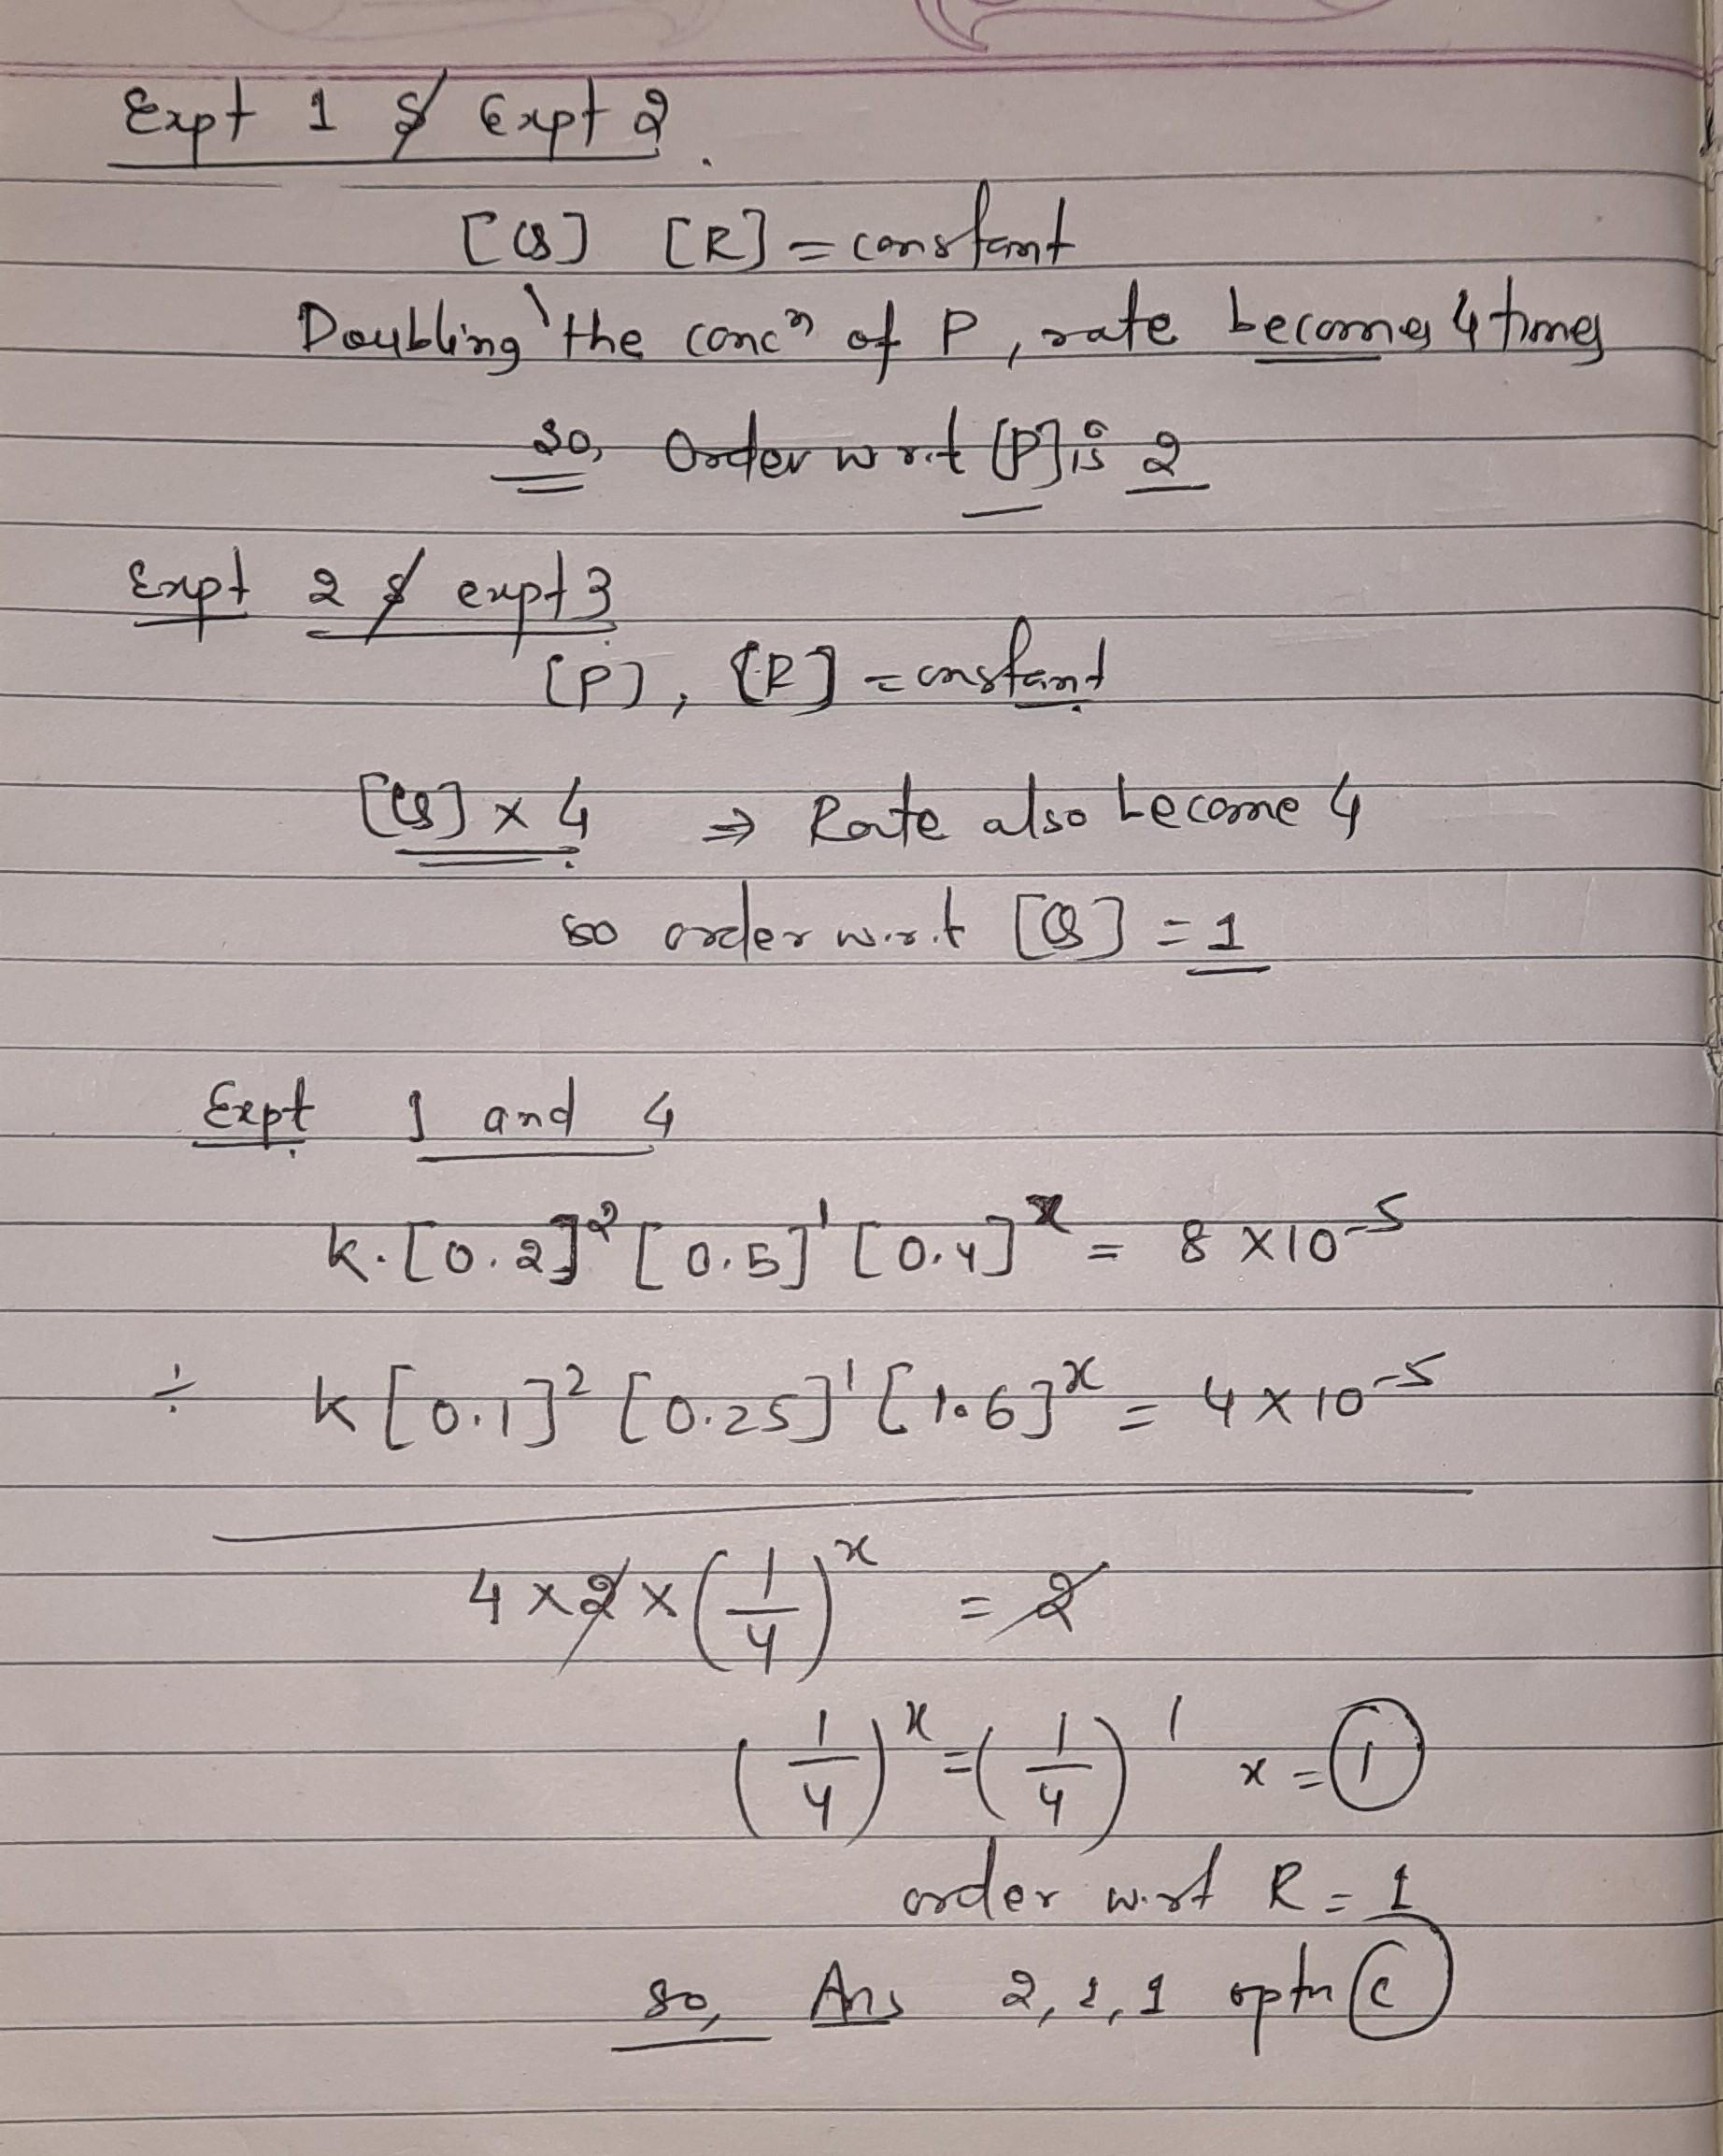 Expt 1 & Expt 2.
[Q] [R] = constant
Doubling the concⁿ of P, rate becomes 4 times
So, Order w r.t [P] is 2
Expt 2 & expt 3
[P], [R] = constant
[Q] × 4 ⇒ Rate also become 4
so order w.r.t [Q] = 1
Expt 1 and 4
k.[0.2]² [0.5]¹ [0.4]ˣ = 8 × 10⁻⁵
÷ k [0.1]² [0.25]¹ [1.6]ˣ = 4 × 10⁻⁵
4 × 2 × (1/4)ˣ = 2
(1/4)ˣ = (1/4)¹ x = 1
order w.r.t R = 1
so, Ans 2, 1, 1 optn (c)